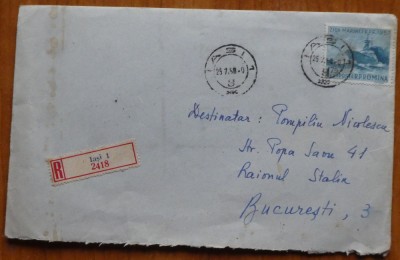 IAȘI 1
25.7.58-9
IAȘI 1
ZIUA MARINEI R.P.R. 1957
ROMINA
R
Iași 1
2418
Destinatar: Pompiliu Nicolescu
Str. Popa Savu 41
Raionul Stalin
București, 3